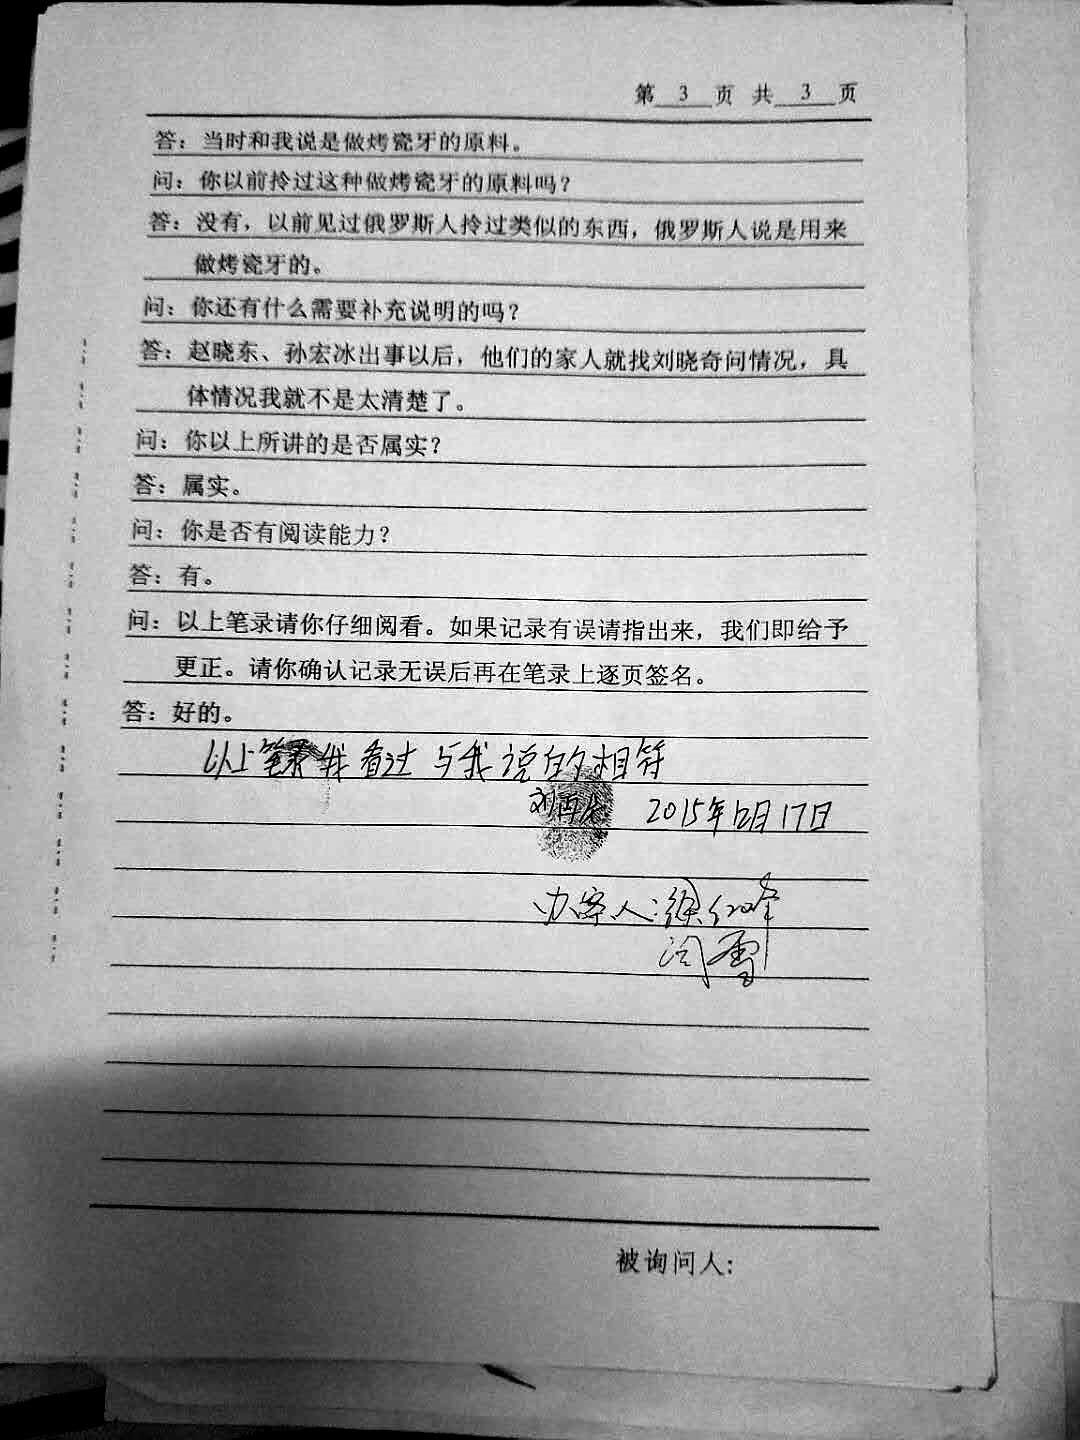 第 3 页 共 3 页
答：当时和我说是做烤瓷牙的原料。
问：你以前拎过这种做烤瓷牙的原料吗？
答：没有，以前见过俄罗斯人拎过类似的东西，俄罗斯人说是用来
做烤瓷牙的。
问：你还有什么需要补充说明的吗？
答：赵晓东、孙宏冰出事以后，他们的家人就找刘晓奇问情况，具
体情况我就不是太清楚了。
问：你以上所讲的是否属实？
答：属实。
问：你是否有阅读能力？
答：有。
问：以上笔录请你仔细阅看。如果记录有误请指出来，我们即给予
更正。请你确认记录无误后再在笔录上逐页签名。
答：好的。
以上笔录我看过与我说的相符
2015年12月17日
办案人：徐红峰
闫雪
被询问人：